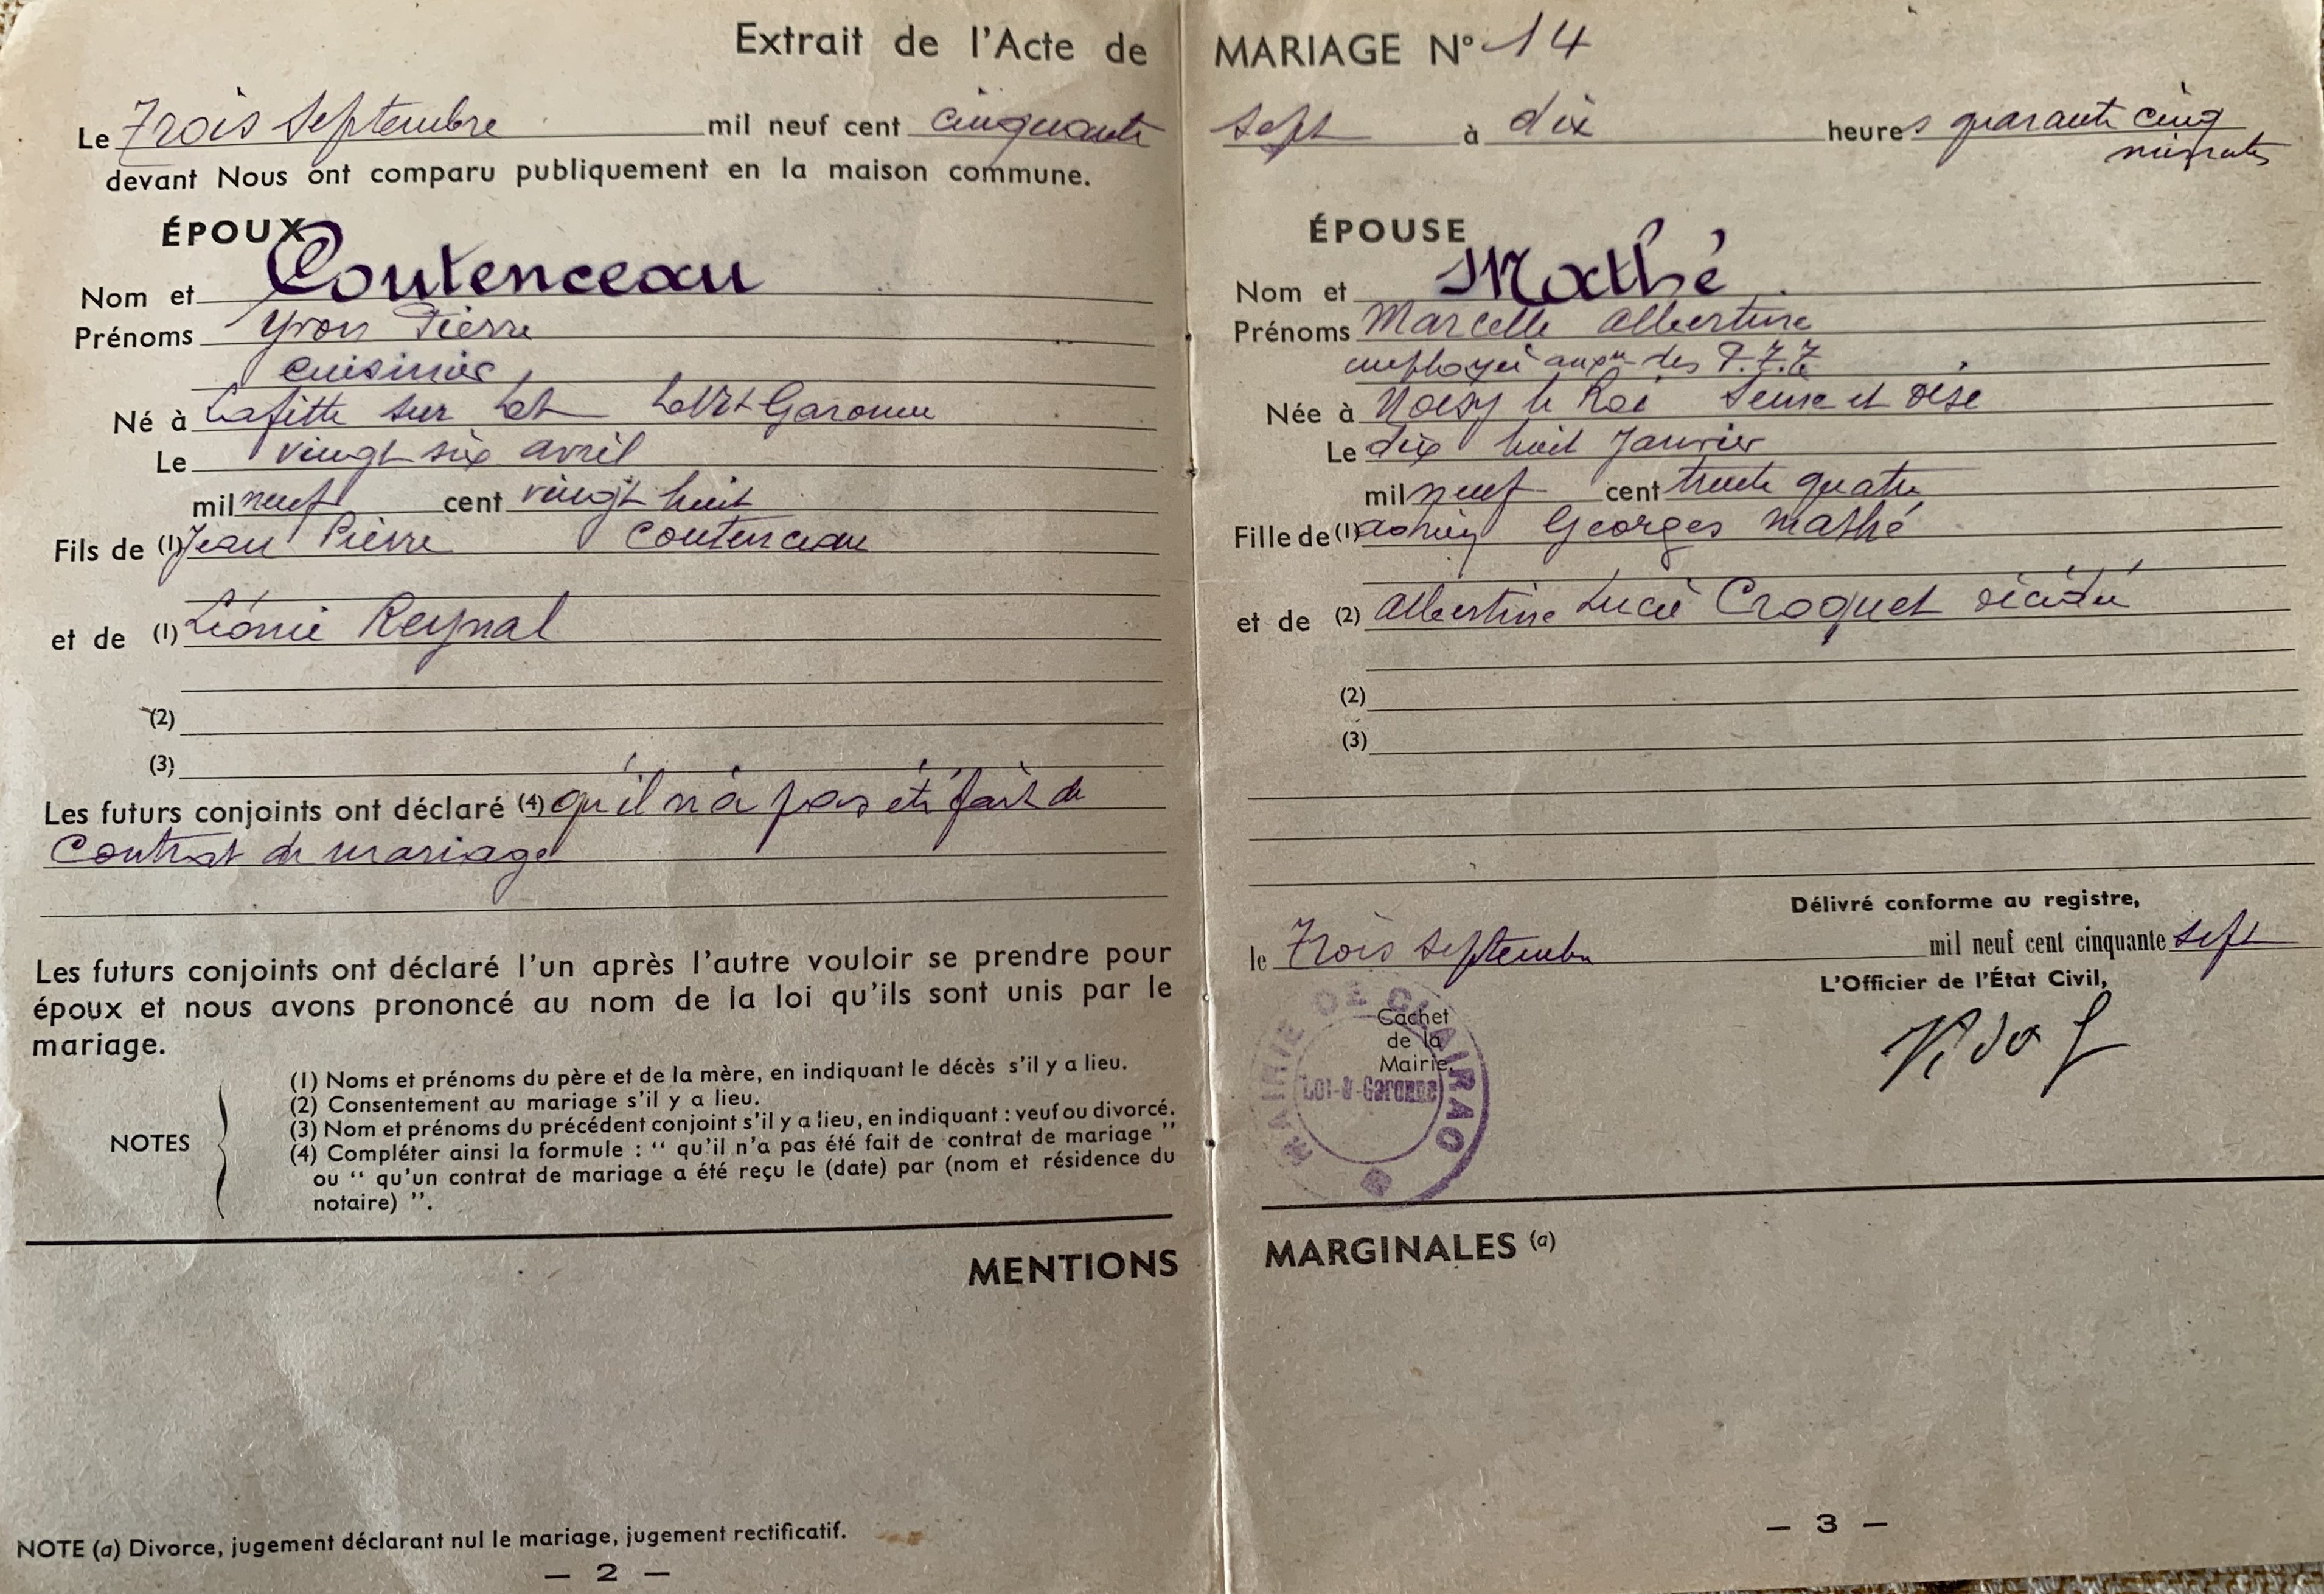 Extrait de l'Acte de MARIAGE N° 14
Le Trois Septembre mil neuf cent cinquante sept à dix heures quarante cinq
minutes
devant Nous ont comparu publiquement en la maison commune.
ÉPOUX
Nom et Coutenceau
Prénoms Yvon Pierre
cuisinier
Né à Lafitte sur Lot Lot & Garonne
Le vingt six avril
mil neuf cent vingt huit
Fils de (1) Jean Pierre Coutenceau
et de (1) Léonie Reynal
(2)
(3)
Les futurs conjoints ont déclaré (4) qu'il n'a pas été fait de
Contrat de mariage
Les futurs conjoints ont déclaré l'un après l'autre vouloir se prendre pour
époux et nous avons prononcé au nom de la loi qu'ils sont unis par le
mariage.
NOTES
(1) Noms et prénoms du père et de la mère, en indiquant le décès s'il y a lieu.
(2) Consentement au mariage s'il y a lieu.
(3) Nom et prénoms du précédent conjoint s'il y a lieu, en indiquant : veuf ou divorcé.
(4) Compléter ainsi la formule : “ qu'il n'a pas été fait de contrat de mariage ”
ou “ qu'un contrat de mariage a été reçu le (date) par (nom et résidence du
notaire) ”.
ÉPOUSE
Nom et Mathé
Prénoms Marcelle Albertine
employée auxre des P.T.T.
Née à Noisy le Roi Seine et Oise
Le dix huit Janvier
mil neuf cent trente quatre
Fille de (1) Georges Mathé
et de (2) Albertine Lucie Croquet décédée
(2)
(3)
Délivré conforme au registre,
le Trois Septembre mil neuf cent cinquante sept
L'Officier de l'État Civil,
Cachet
de la
Mairie
MAIRIE DE CLAIRAC
Lot-&-Garonne
MENTIONS MARGINALES (a)
NOTE (a) Divorce, jugement déclarant nul le mariage, jugement rectificatif.
— 2 —
— 3 —